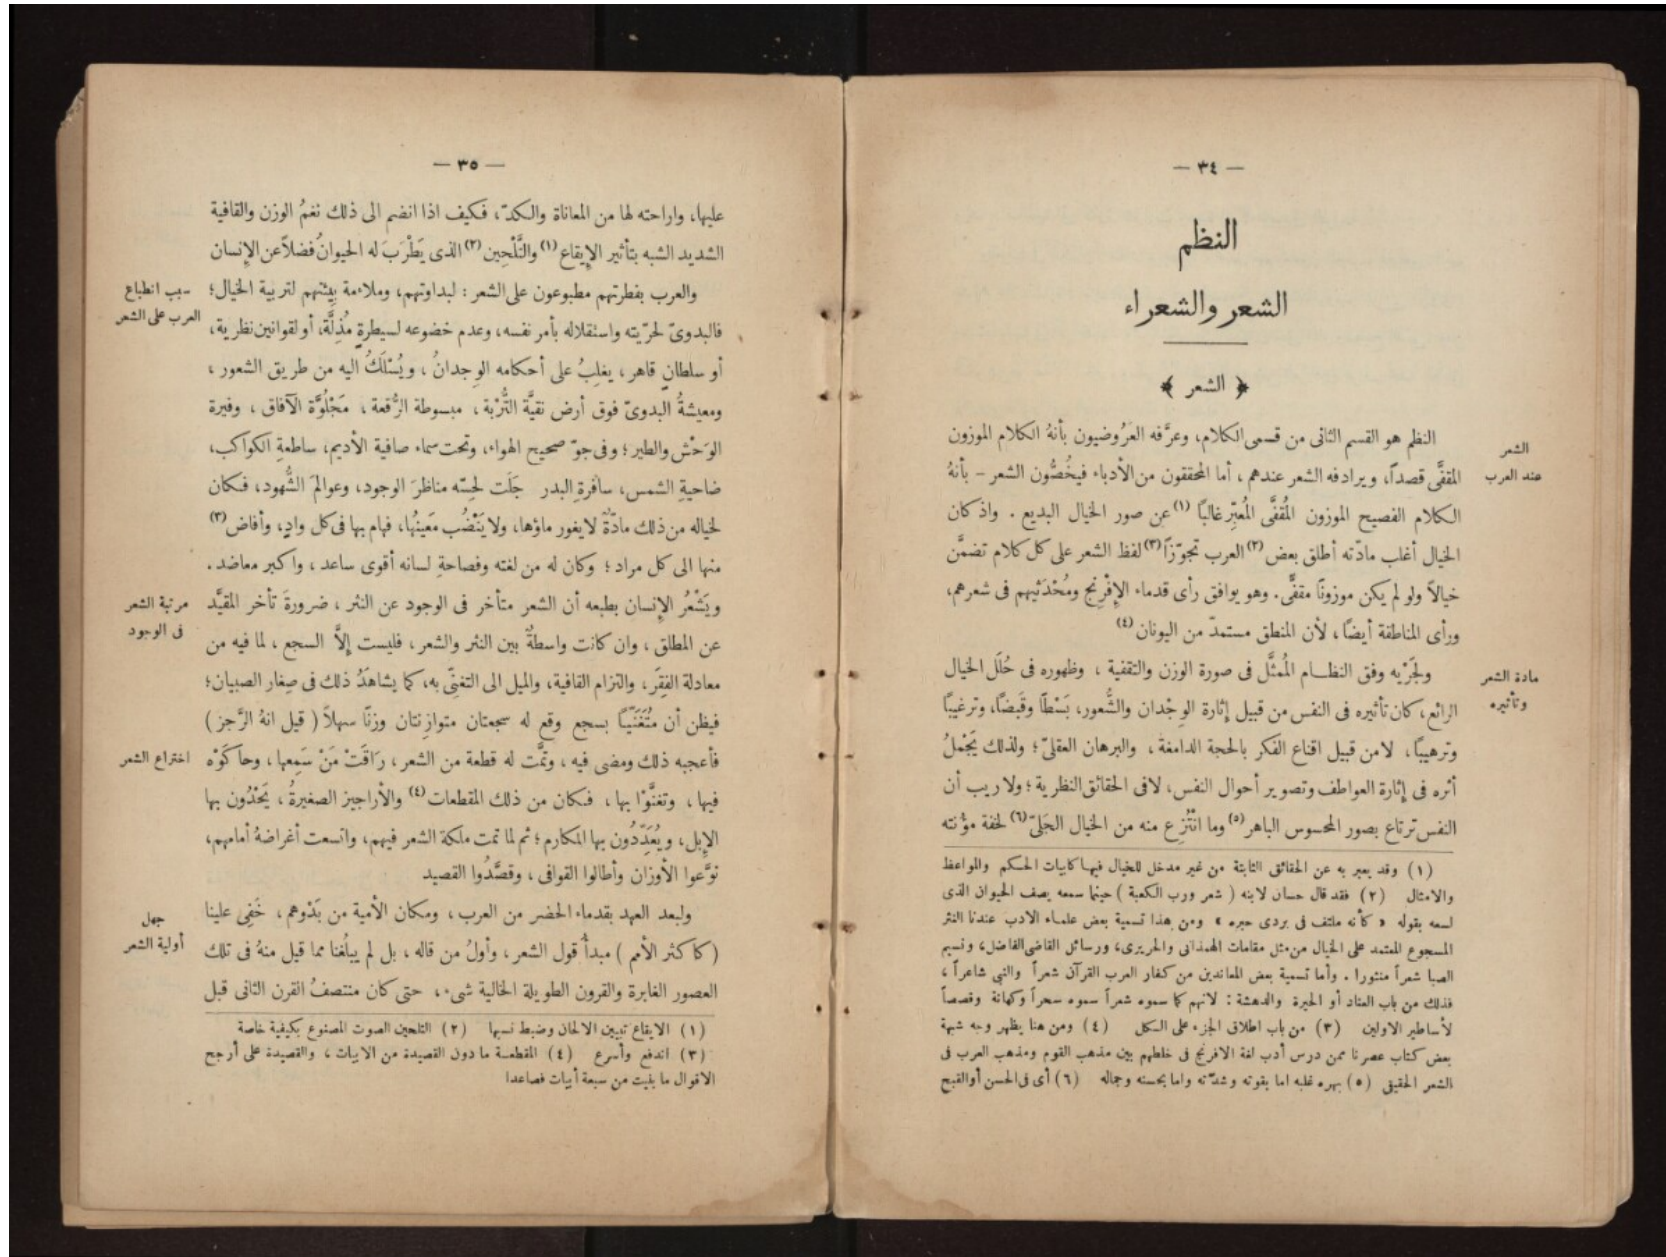 — ٣٤ —
النظم
الشعر والشعراء
﴿ الشعر ﴾
الشعر
عند العرب
النظم هو القسم الثانى من قسمى الكلام، وعرَّفه العَرُوضيون بأنهُ الكلام الموزون
المقفَّى قصداً، ويرادفه الشعر عندهم، أما المحققون من الأدباء فيخُصُّون الشعر – بأنهُ
الكلام الفصيح الموزون المُقفَّى المُعبِّر غالبًا (١) عن صور الخيال البديع . واذ كان
الخيال أغلب مادّته أطلق بعض (٢) العرب تجوّزاً (٣) لفظ الشعر على كل كلام تضمَّن
خيالاً ولو لم يكن موزونًا مقفًّى. وهو يوافق رأى قدماء الإِفْرِنج ومُحْدَثيهم فى شعرهم،
ورأى المناطقة أيضًا، لأن المنطق مستمدّ من اليونان (٤)
مادة الشعر
وتأثيره
ولجَرْيه وفق النظام المُمثَّل فى صورة الوزن والتقفية ، وظهوره فى حُلَل الخيال
الرائع، كان تأثيره فى النفس من قبيل إثارة الوِجْدان والشُّعور، بَسْطًا وقَبضًا، وترغيبًا
وترهيبًا، لا من قبيل اقناع الفكر بالحجة الدامغة، والبرهان العقلىّ؛ ولذلك يَجْملُ
أثره فى إثارة العواطف وتصوير أحوال النفس، لا فى الحقائق النظرية ؛ ولا ريب أن
النفس ترتاع بصور المحسوس الباهر (٥) وما انْتُزِع منه من الخيال الجَلىّ (٦) لخفة مؤنته
(١) وقد يعبر به عن الحقائق الثابتة من غير مدخل للخيال فيها كابيات الحكم والمواعظ
والامثال (٢) فقد قال حسان لابنه ( شعر ورب الكعبة ) حينما سمعه يصف الحيوان الذى
لسعه بقوله « كأنه ملتف فى بردى حبره » ومن هذا تسمية بعض علماء الادب عندنا النثر
المسجوع المعتمد على الخيال من مثل مقامات الهمذانى والحريرى، ورسائل القاضى الفاضل، ونسيم
الصبا شعراً منثورا . وأما تسمية بعض المعاندين من كفار العرب القرآن شعراً والنبي شاعراً ،
فذلك من باب العناد أو الحيرة والدهشة : لانهم كما سموه شعراً سموه سحراً وكهانة وقصصاً
لأساطير الاولين (٣) من باب اطلاق الجزء على الكل (٤) ومن هنا يظهر وجه شبهة
بعض كتاب عصرنا ممن درس أدب لغة الافرنج فى خلطهم بين مذهب القوم ومذهب العرب فى
الشعر الحقيقى (٥) بهره غلبه اما بقوته وشدّته واما بحسنه وجماله (٦) أى فى الحسن أو القبح
— ٣٥ —
عليها، واراحته لها من المعاناة والكدّ، فكيف اذا انضم الى ذلك نغمُ الوزن والقافية
الشديد الشبه بتأثير الإِيقاع (١) والتَّلْحِين (٢) الذى يَطْرَبَ له الحيوانُ فضلاً عن الإنسان
سبب انطباع
العرب على الشعر
والعرب بفطرتهم مطبوعون على الشعر : لبداوتهم، وملاءمة بِيئتهم لتربية الخيال؛
فالبدوىّ لحرّيته واستقلاله بأمر نفسه، وعدم خضوعه لسيطرةٍ مُذِلَّة، أو لقوانين نظرية،
أو سلطانٍ قاهر، يغلِبُ على أحكامه الوِجدانُ ، ويُسْلَكُ اليه من طريق الشعور ،
ومعيشةُ البدوىّ فوق أرض نقيَّة التُّرْبة ، مبسوطة الرُّقعة ، مَجْلُوَّة الآفاق ، وفيرة
الوَحْش والطير؛ وفى جوّ صحيح الهواء، وتحت سماء صافية الأديم، ساطعةِ الكواكب،
ضاحيةِ الشمس، سافرةِ البدر جَلَت لحِسّه مناظرَ الوجود، وعوالمَ الشُّهود، فكان
لخياله من ذلك مادّةٌ لا يغور ماؤها، ولا يَنْضُب مَعينُها، فهام بها فى كل وادٍ، وأفاض (٣)
منها الى كل مراد؛ وكان له من لغته وفصاحةِ لسانه أقوى ساعد ، واكبر معاضد .
مرتبة الشعر
فى الوجود
ويَشْعُرُ الإنسان بطبعه أن الشعر متأخر فى الوجود عن النثر ، ضرورةَ تأخر المقيَّد
عن المطلق ، وان كانت واسطةٌ بين النثر والشعر ، فليست إلاَّ السجع ، لما فيه من
معادلة الفِقَر، والتزام القافية، والميل الى التغنّى به، كما يشاهدُ ذلك فى صِغار الصبيان؛
فيظن أن مُتَغَنّيًا بسجع وقع له سجعتان متوازنتان وزنًا سهلاً ( قيل انهُ الرَّجز )
اختراع الشعر
فأعجبه ذلك ومضى فيه ، وتمَّت له قطعة من الشعر ، رَاقَتْ مَنْ سَمِعها ، وحاكَوْه
فيها ، وتغنَّوْا بها ، فكان من ذلك المقطعات (٤) والأراجيز الصغيرةُ ، يَحْدُون بها
الإِبل، ويُعَدِّدُون بها المكارم؛ ثم لما تمت ملكة الشعر فيهم، واتسعت أغراضهُ أمامهم،
نوَّعوا الأوزان وأطالوا القوافى ، وقصَّدُوا القصيد
جهل
أولية الشعر
ولبعد العهد بقدماء الحضر من العرب ، ومكان الأمية من بَدْوهم ، خَفِى علينا
( كاكثر الأمم ) مبدأُ قول الشعر، وأولُ من قاله ، بل لم يبلُغنا مما قيل منهُ فى تلك
العصور الغابرة والقرون الطويلة الخالية شىء ، حتى كان منتصفُ القرن الثانى قبل
(١) الايقاع تبيين الالحان وضبط نسبها (٢) التلحين الصوت المصنوع بكيفية خاصة
(٣) اندفع وأسرع (٤) المقطعة ما دون القصيدة من الابيات ، والقصيدة على أرجح
الاقوال ما بنيت من سبعة أبيات فصاعدا